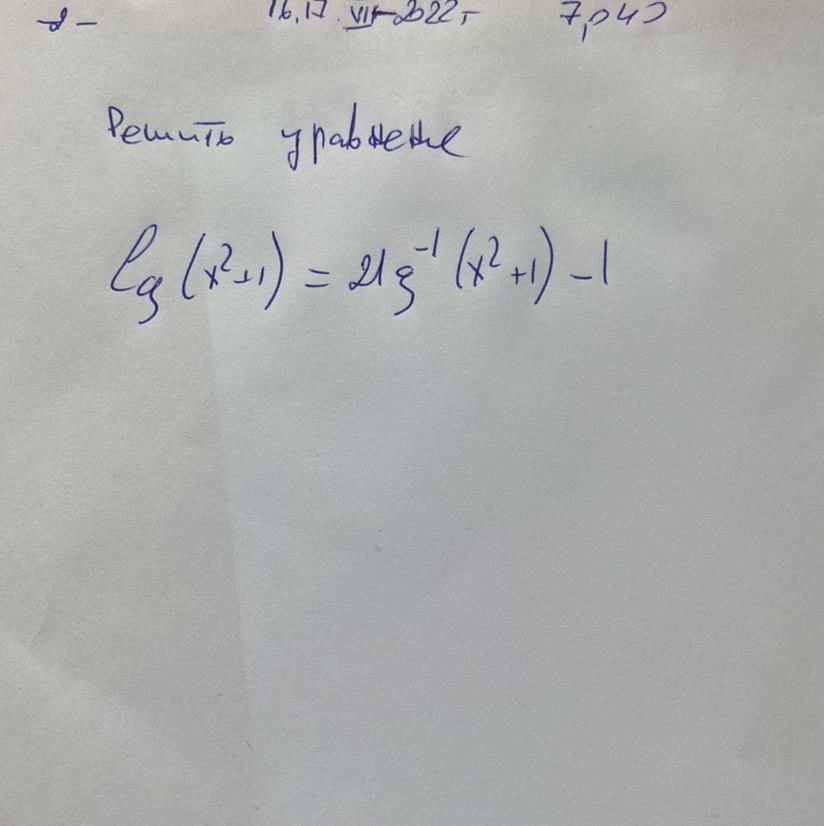 16, 17. VII-2022г
Решить уравнение
lg (x²+1) = 2lg⁻¹ (x²+1) - 1